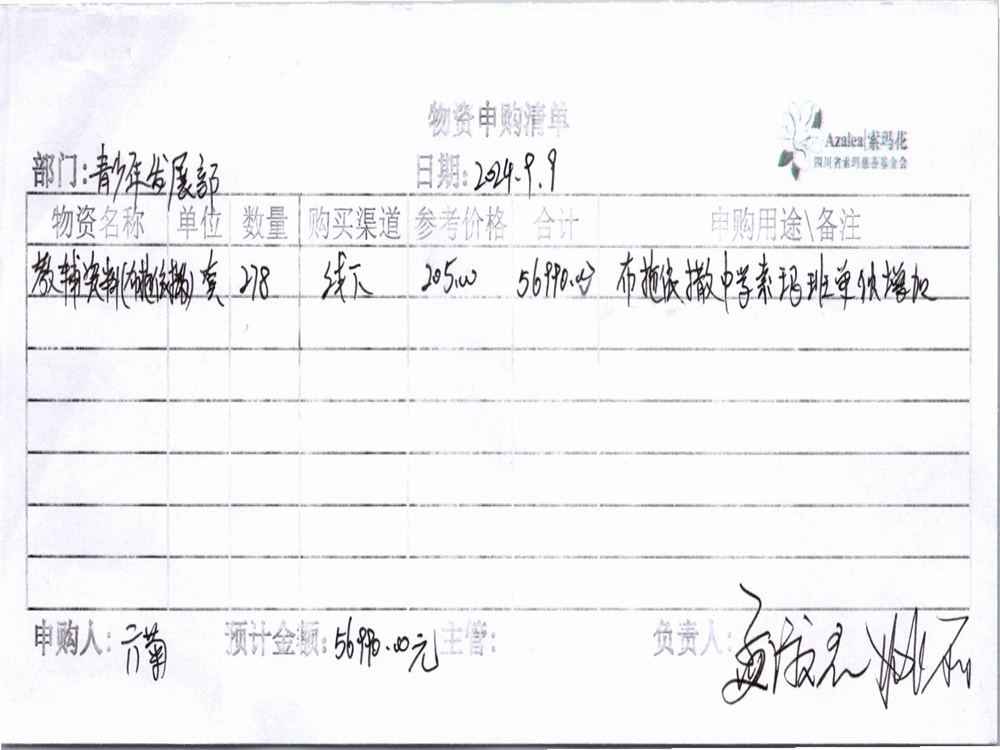 物资申购清单
Azalea|索玛花
四川省索玛慈善基金会
部门:青少年发展部 日期:2024.9.9
物资名称 单位 数量 购买渠道 参考价格 合计 申购用途\备注
教辅资料(布拖依撒) 套 278 线下 205.00 56990.00 布拖依撒中学索玛班单价增加
申购人: 菊 预计金额:56990.00元 主管: 负责人: